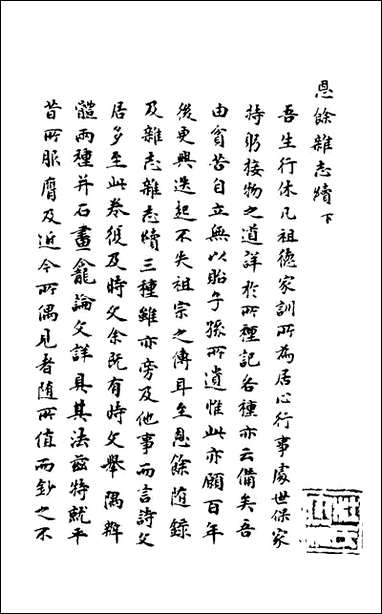 恩餘雜志續下
吾生行休凡祖德家訓所為居心行事處世保家
持躬接物之道詳於所種記各種亦云備矣吾
由貧苦自立無以貽子孫所遺惟此亦願百年
後更興迭起不失祖宗之傳耳至恩餘隨錄
及雜志雜志續三種雖亦旁及他事而言詩文
居多至此卷復及時文余既有時文舉隅辨
體兩種并石畫龕論文詳具其法茲特就平
昔所服膺及近今所偶見者隨所值而鈔之不